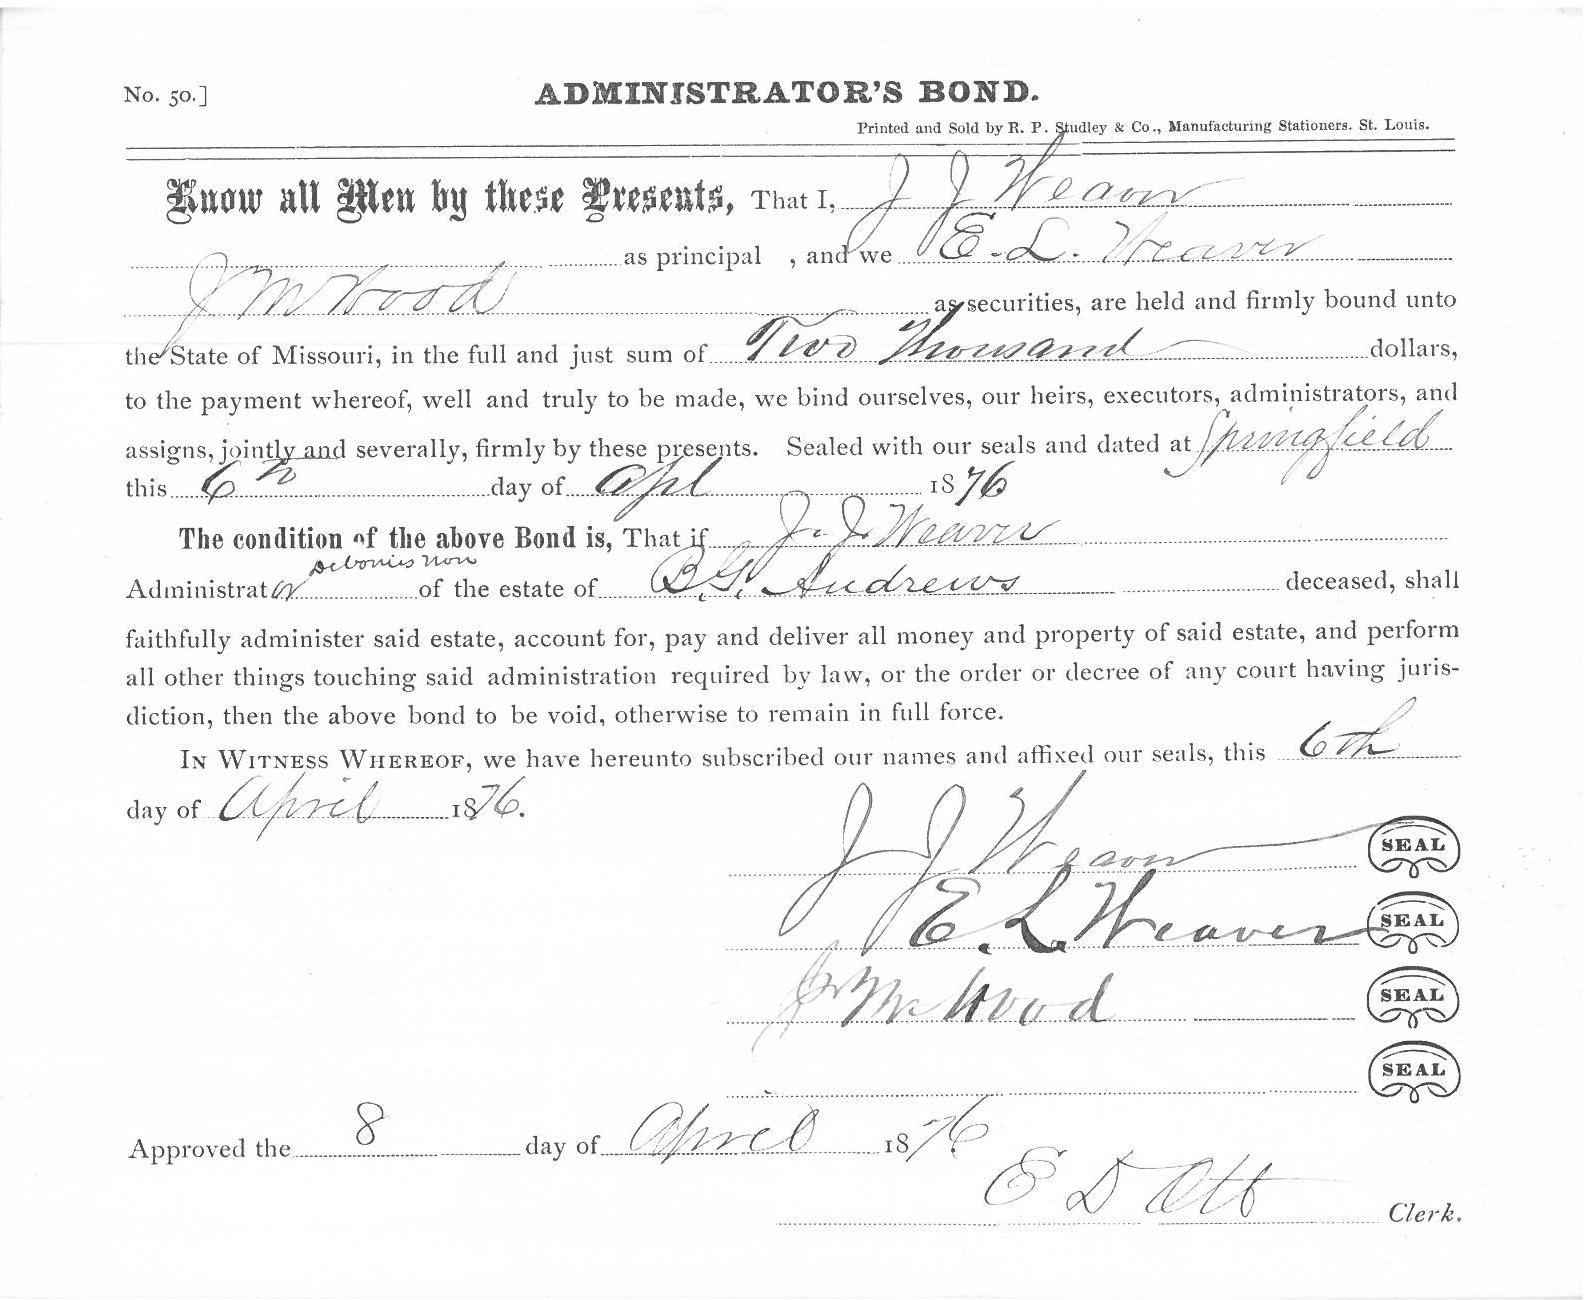 No. 50.]
ADMINISTRATOR'S BOND.
Printed and Sold by R. P. Studley & Co., Manufacturing Stationers. St. Louis.
Know all Men by these Presents, That I, J J Weaver
as principal , and we E. L. Weaver
J M Wood as securities, are held and firmly bound unto
the State of Missouri, in the full and just sum of Two Thousand dollars,
to the payment whereof, well and truly to be made, we bind ourselves, our heirs, executors, administrators, and
assigns, jointly and severally, firmly by these presents. Sealed with our seals and dated at Springfield
this 6th day of Apl 1876
The condition of the above Bond is, That if J. J. Weaver
Debonis non
Administrator of the estate of B. G. Andrews deceased, shall
faithfully administer said estate, account for, pay and deliver all money and property of said estate, and perform
all other things touching said administration required by law, or the order or decree of any court having juris-
diction, then the above bond to be void, otherwise to remain in full force.
IN WITNESS WHEREOF, we have hereunto subscribed our names and affixed our seals, this 6th
day of April 1876.
J J Weaver SEAL
E. L. Weaver SEAL
J M Wood SEAL
SEAL
Approved the 8 day of April 1876
E D Ott Clerk.